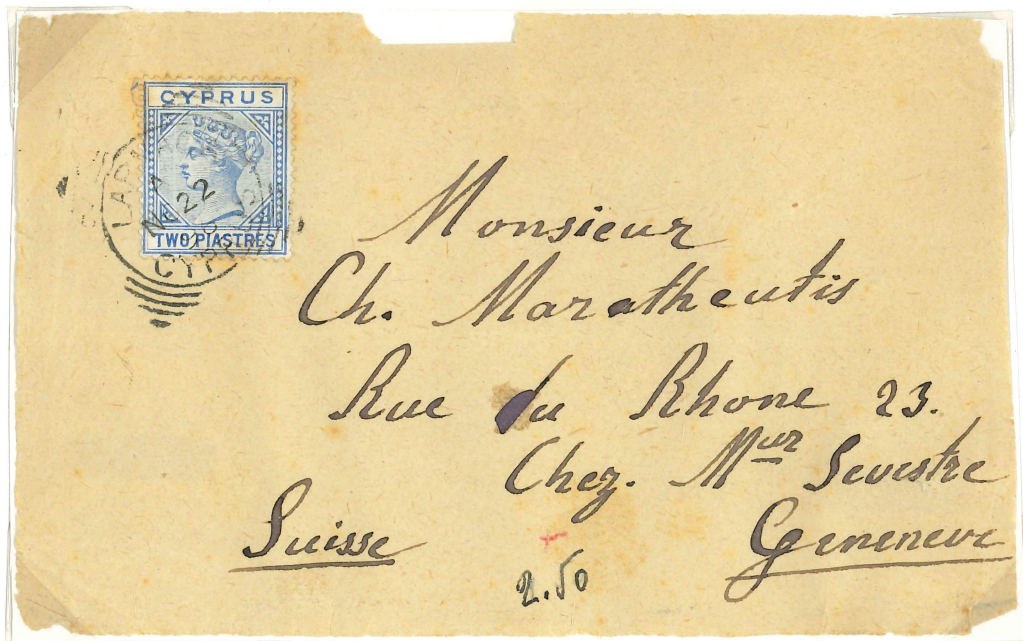 CYPRUS
TWO PIASTRES
22
CYPR
Monsieur
Ch. Maratheutis
Rue du Rhone 23.
Chez. Mʳ Sevestre
Suisse
Geneneve
2.50